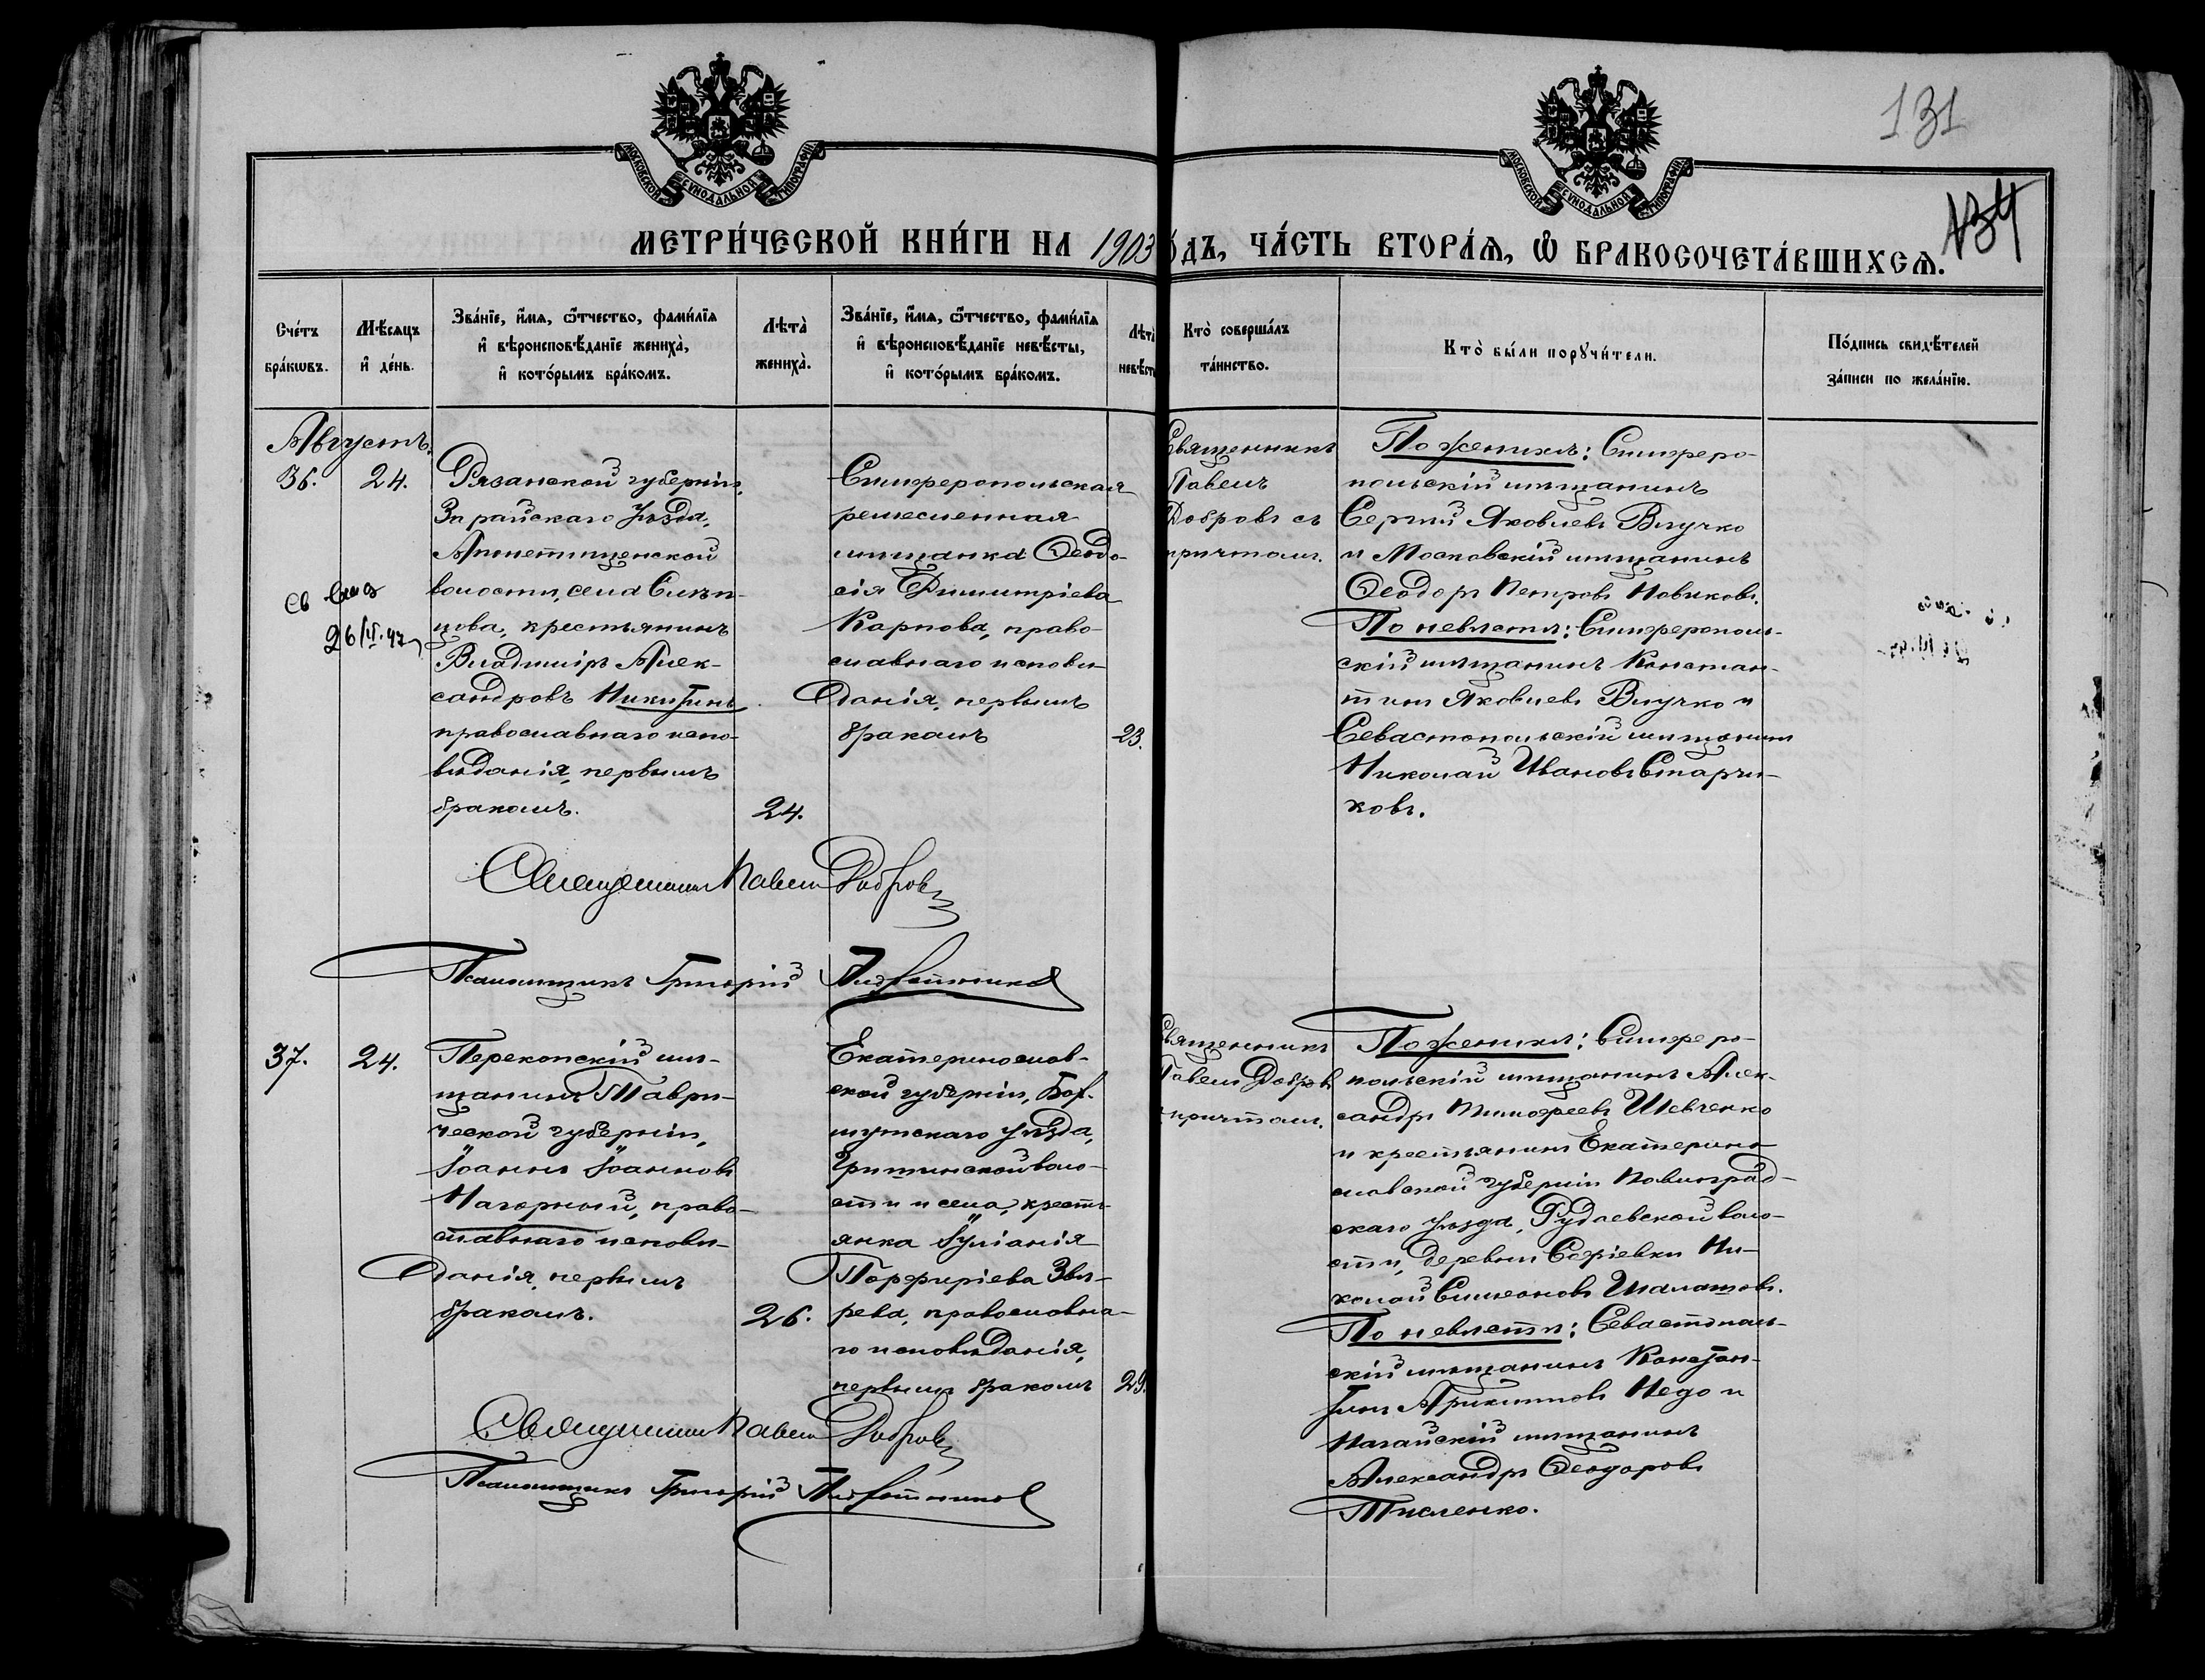 131
134
МОСКОВСКОЙ СѴНОДАЛЬНОЙ ТИПОГРАФІИ
МОСКОВСКОЙ СѴНОДАЛЬНОЙ ТИПОГРАФІИ
МЕТРИ́ЧЕСКОЙ КНИ́ГИ НА 1903 ГО́ДЪ, ЧА́СТЬ ВТОРА́Ѧ, Ѽ БРАКОСОЧЕТА́ВШИХСѦ.
Сче́тъ
бра́кѡвъ.
Мѣ́сяцъ
и҆ де́нь.
Зва́нїе, и҆́мѧ, ѻ҆́тчество, фами́лїѧ
и҆ вѣроисповѣ́данїе жениха̀,
и҆ кото́рымъ бра́комъ.
Лѣта̀
жениха̀.
Зва́нїе, и҆́мѧ, ѻ҆́тчество, фами́лїѧ
и҆ вѣроисповѣ́данїе невѣ́сты,
и҆ кото́рымъ бра́комъ.
Лѣта̀
невѣ́сты
Кто̀ соверша́лъ
та́инство.
Кто̀ бы́ли порꙋчи́тели.
По́дпись свидѣ́телей
за́писи по жела́нїю.
Августъ.
36.
24.
Рязанской губерніи,
Зарайскаго уѣзда,
волости, села
цова, крестьянинъ
Владиміръ Алек-
сандровъ Никитинъ
православнаго испо-
вѣданія, первымъ
бракомъ.
24.
Симферопольская
ремесленная
мѣщанка Ѳеодо-
сія Димитріева
Карпова, право-
славнаго исповѣ-
данія, первымъ
бракомъ
23.
Священникъ
Павелъ
Добровъ съ
причтомъ.
По женихѣ: Симферо-
польскій мѣщанинъ
Сергій Яковлевъ Влучко
и Московскій мѣщанинъ
Ѳеодоръ Петровъ Новиковъ.
По невѣстѣ: Симферополь-
скій мѣщанинъ Констан-
тинъ Яковлевъ Влучко и
Севастопольскій мѣщанинъ
Николай Ивановъ Старчи-
ковъ.
Св
26/VI.47
Священникъ Павелъ Добровъ
Псаломщикъ Григорій
37.
24.
Перекопскій мѣ-
щанинъ Таври-
ческой губерніи,
Іоаннъ Іоанновъ
Нагорный, право-
славнаго исповѣ-
данія, первымъ
бракомъ.
26.
Екатеринослав-
ской губерніи, Бах-
мутскаго уѣзда,
Гришинской воло-
сти и села, кресть-
янка Іуліанія
Порфиріева Звѣ-
рева, православна-
го исповѣданія,
первымъ бракомъ
29.
Священникъ
Павелъ Добровъ
съ причтомъ.
По женихѣ: Симферо-
польскій мѣщанинъ Алек-
сандръ Тимофеевъ Шевченко
и крестьянинъ Екатерино-
славской губерніи Павлоград-
скаго уѣзда, Рудаевской воло-
сти, деревни Софіевки Ни-
колай Симеоновъ Шалатовъ.
По невѣстѣ: Севастополь-
скій мѣщанинъ Констан-
тинъ Недо и
Ногайскій мѣщанинъ
Александръ Ѳеодоровъ
Тисленко.
Священникъ Павелъ Добровъ
Псаломщикъ Григорій